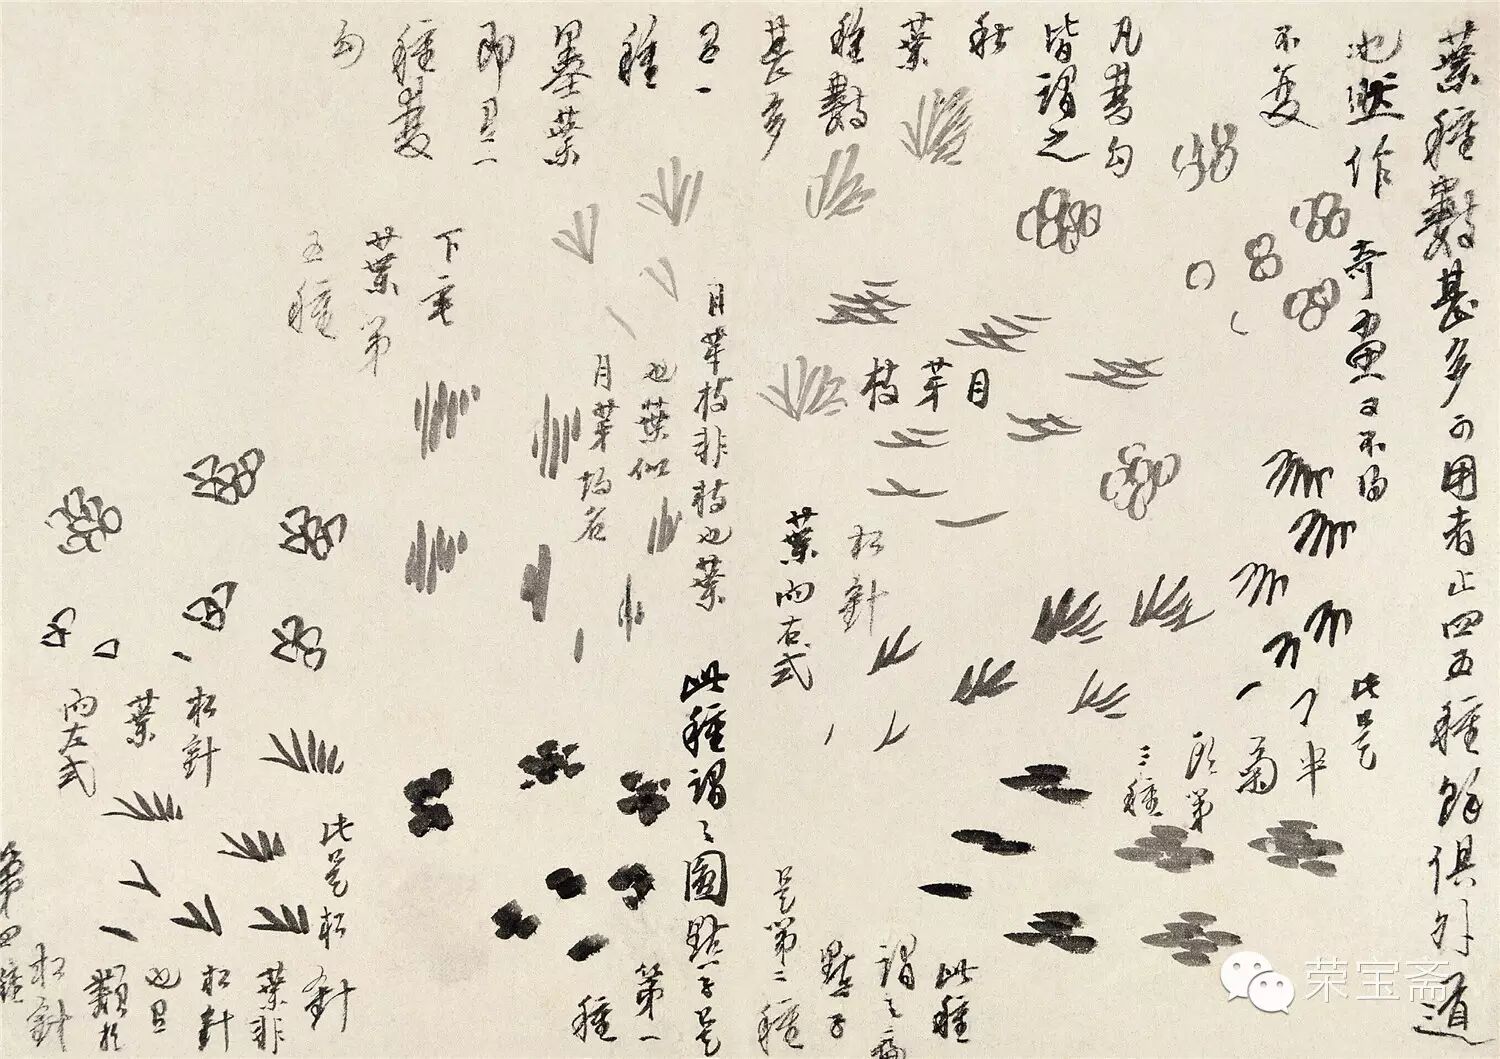 葉種數甚多可用者止四五種餘俱外道
也然作奇畫又不拘
不變
凡葉勾
皆謂之
秋
葉
種數
甚多
且一
種
墨葉
即且二
種葉
勾
此是
丁半
菊
頭第
三種
月芽枝
松針
葉向右式
此種
謂之扁
點子
是第二種
月芽枝非枝也葉
也葉似
月芽故名
此種謂之圓點子是
第一
種
下垂
葉第
五種
松針
葉
向左式
此是松針
葉非
松針
也且
類於
松針
第四種
荣宝斋